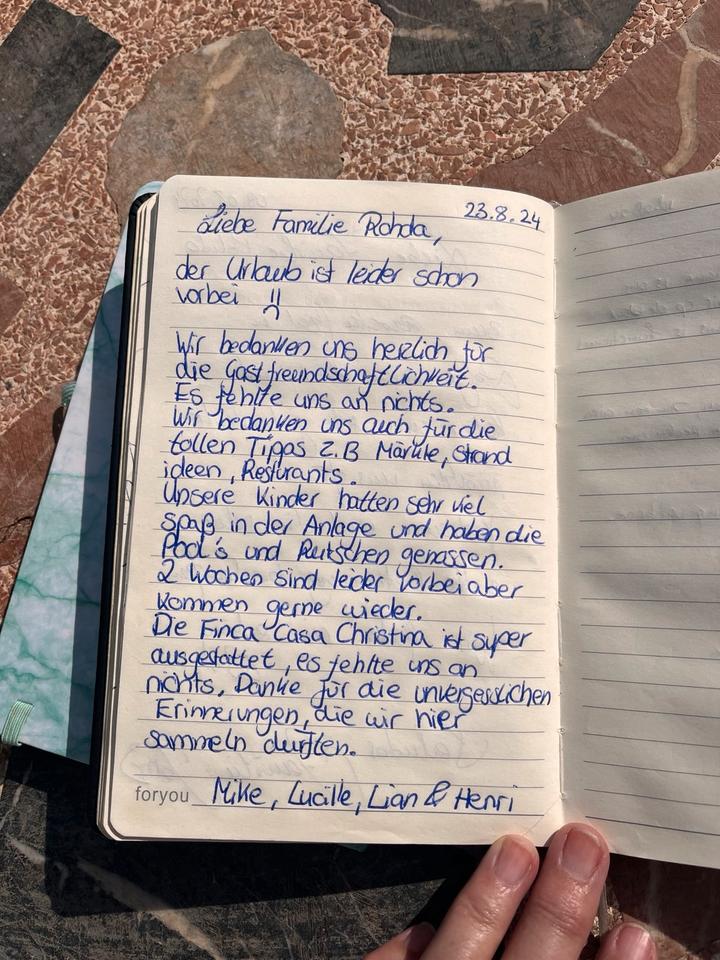 23.8.24
Liebe Familie Rohda,
der Urlaub ist leider schon
vorbei !!
Wir bedanken uns herzlich für
die Gastfreundschaftlichkeit.
Es fehlte uns an nichts.
Wir bedanken uns auch für die
tollen Tipps z.B Märkte, Strand
ideen, Resturants.
Unsere Kinder hatten sehr viel
spaß in der Anlage und haben die
Pool's und Rutschen genossen.
2 Wochen sind leider vorbei aber
kommen gerne wieder.
Die Finca Casa Christina ist super
ausgestattet, es fehlte uns an
nichts, Danke für die unvergesslichen
Erinnerungen, die wir hier
sammeln durften.
foryou Mike, Lucille, Lian & Henri